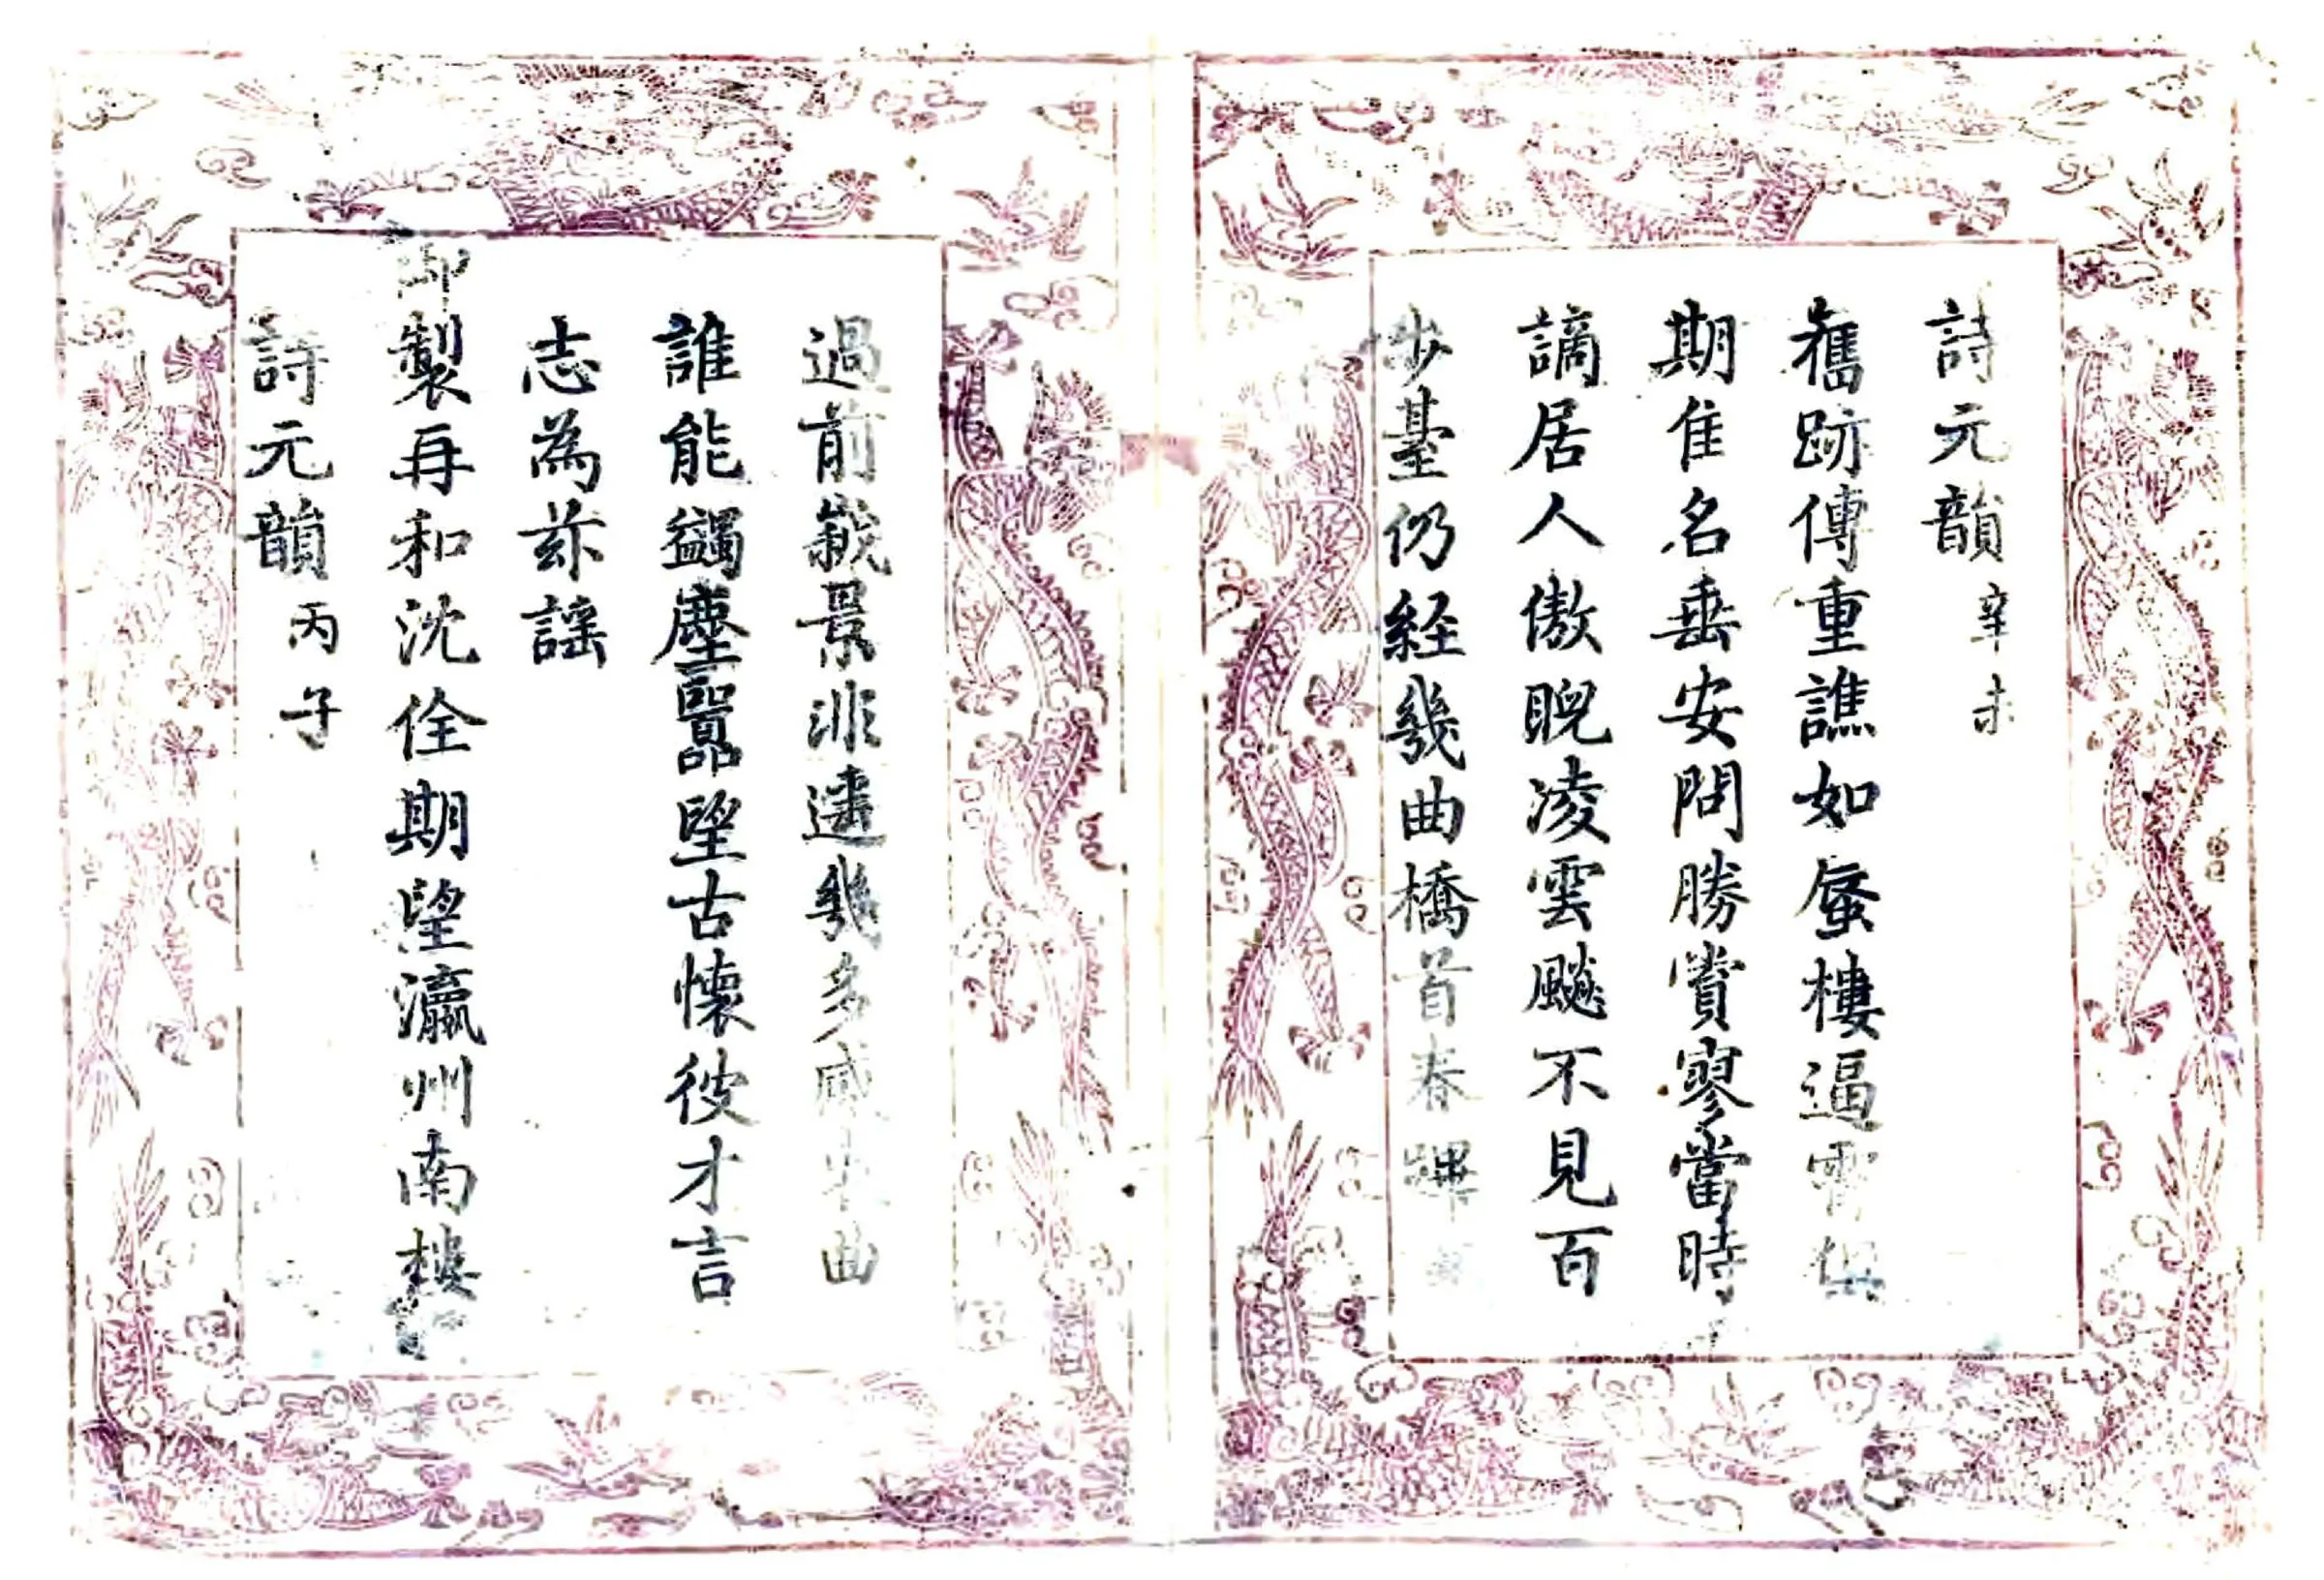 詩元韻 辛未
舊跡傳重譙如蜃樓逼霄
期隹名垂安問勝賞寥當時
謫居人傲睨凌雲飈不見百
步臺仍経幾曲橋首春蹕
過前嵗景非幾多感曲
誰能蠲塵囂望古懷彼才言
志為茲謠
御製再和沈佺期望瀛州南樓
詩元韻 丙子